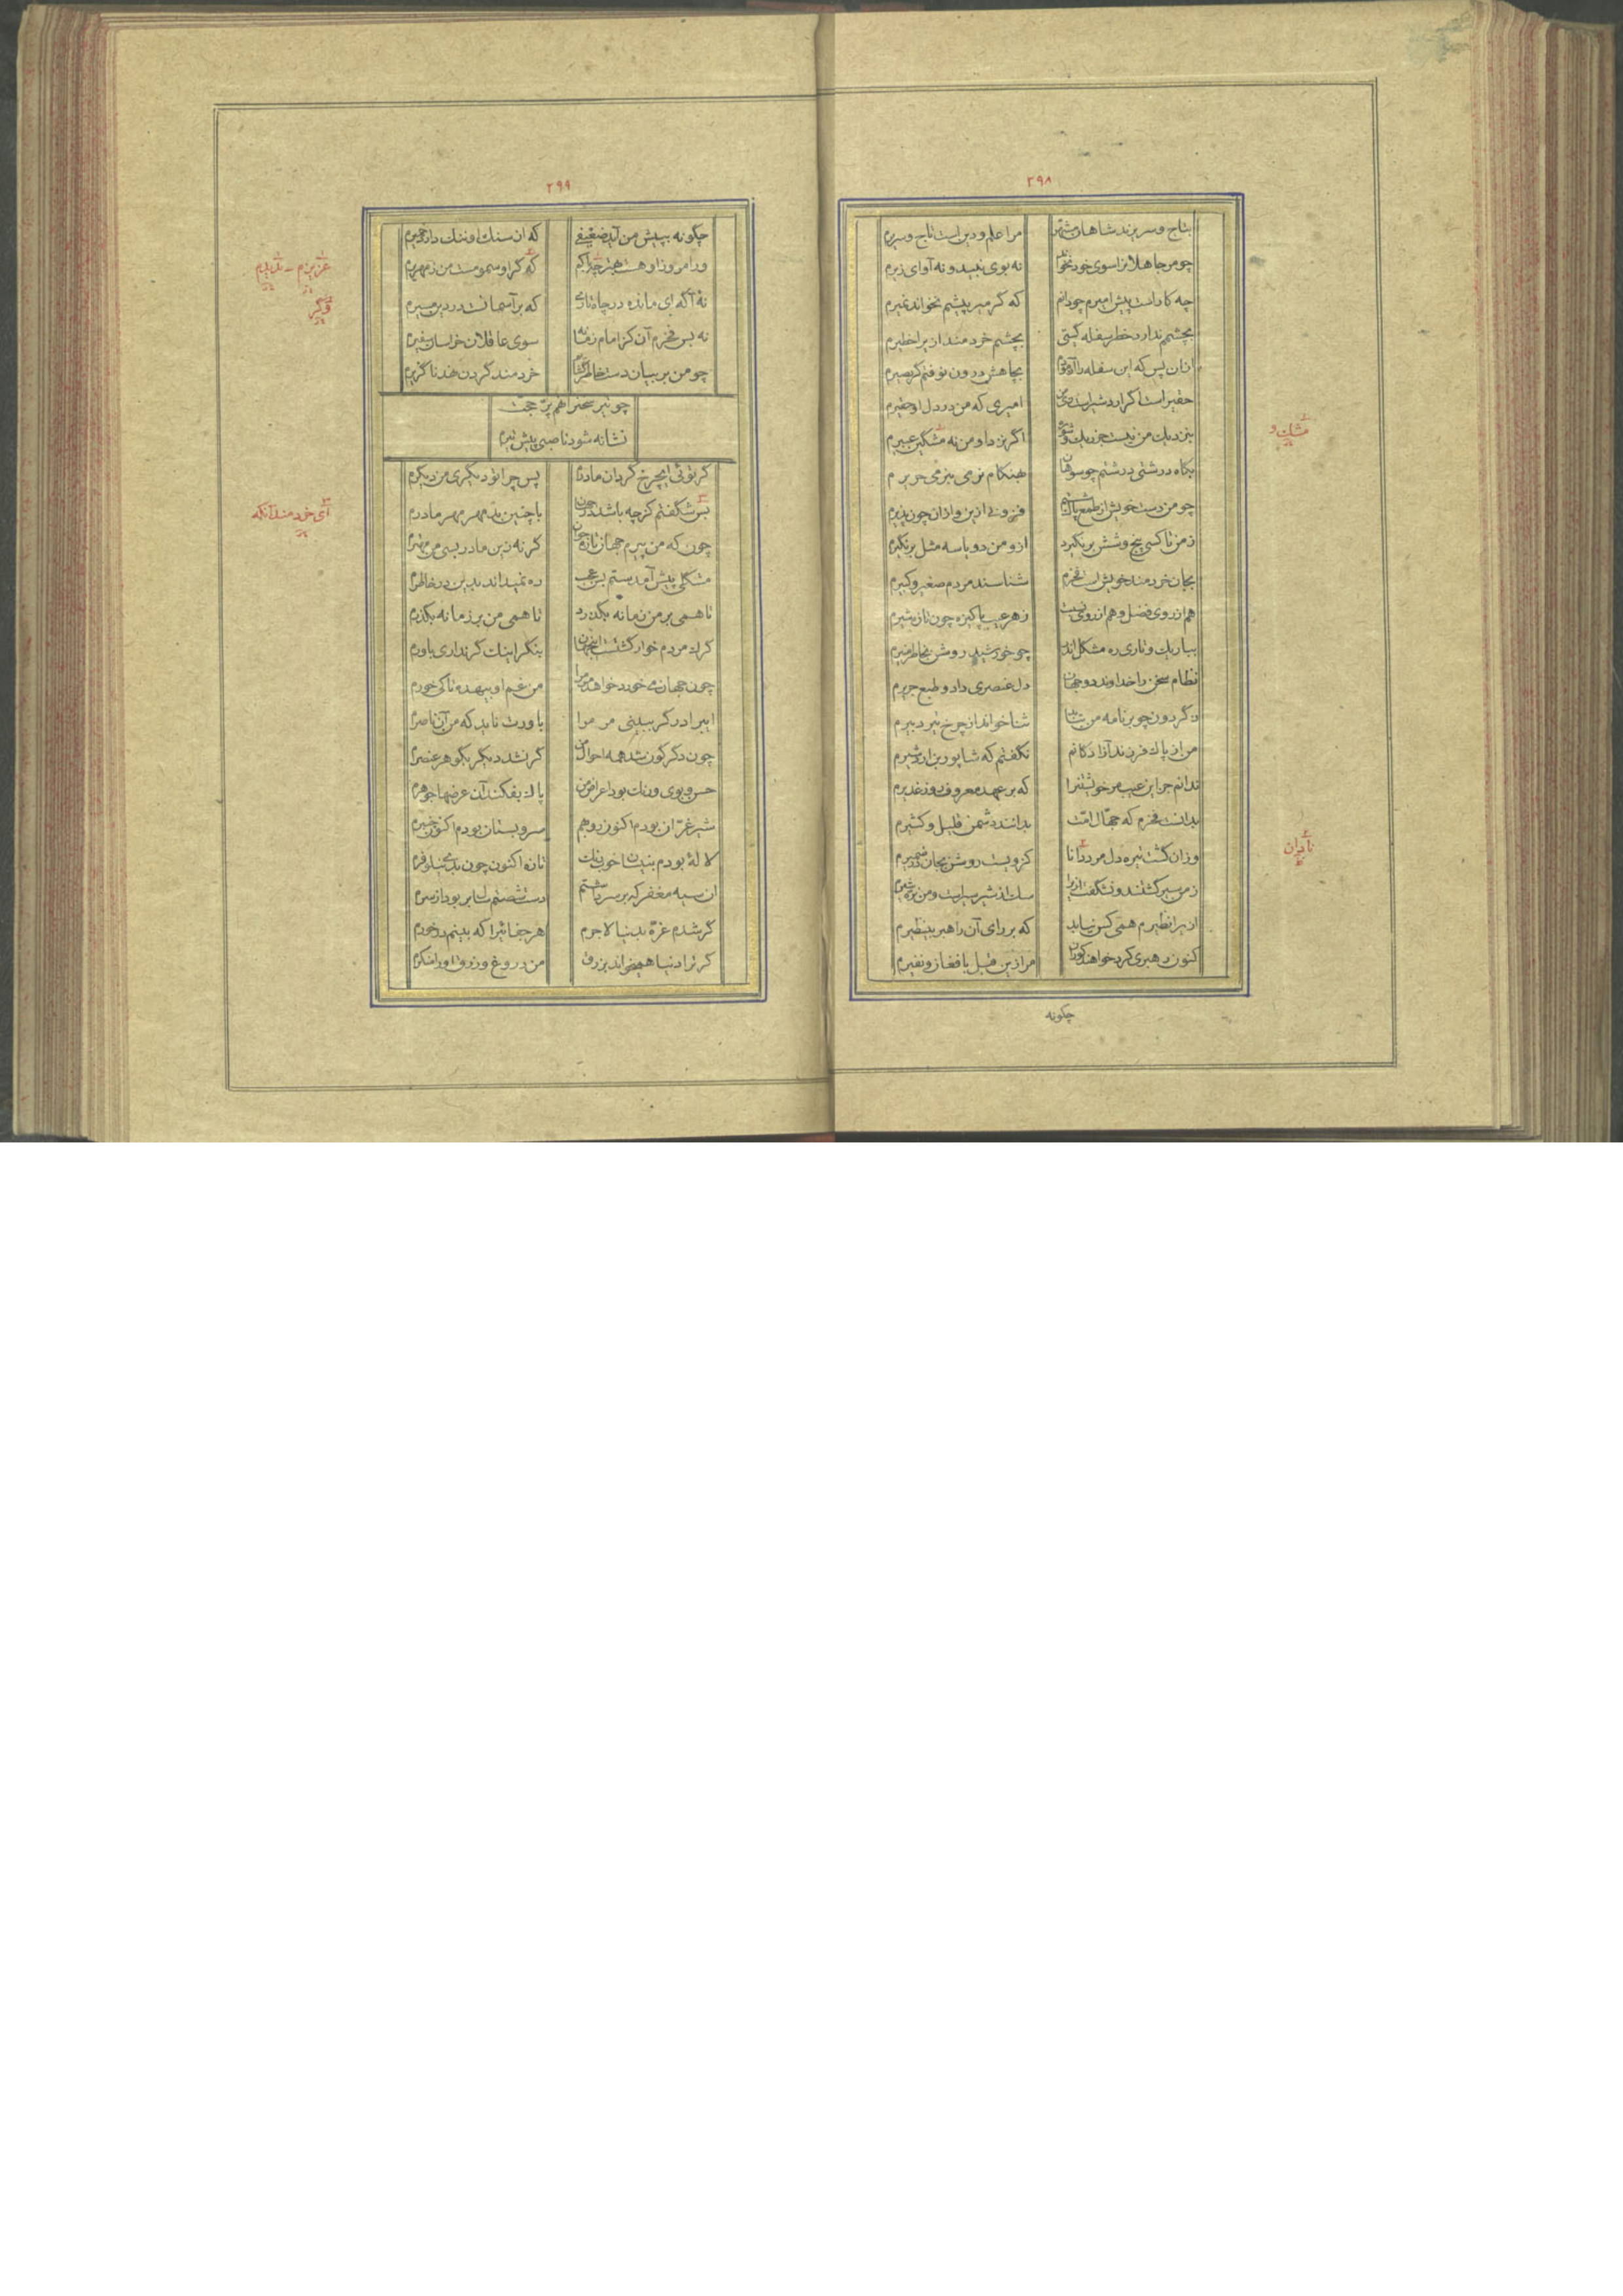 ۲۹۸
بتاج و سریرند شاهان مشهّر مرا علم و دین است تاج و سریرم
چو من جاهلانرا سوی خود نخوانم نه بوی نبید و نه آوای زیرم
چه کار است پیش امیرم چو دانم که گر میر پیشم نخواند نمیرم
بچشم ندارد خطر سفله گیتی بچشم خردمند ازیرا خطیرم
ازان پس که این سفله را آزمودم بجاهش درون نوفتم گر بصیرم
حقیر است اگر اردشیر است زی من امیری که من در دل او حقیرم
بنزدیک من نیست جز ریک و شوره اگر نزد او من نه مشگین عبیرم
بگاه درشتی درشتم چو سوهان بهنگام نرمی بنرمی حریرم
چو من دست خویش از طمع پاک شستم فزونی ازین و ازان چون پذیرم
زمن تا کسی پنج و شش بر نگیرد ازو من دو یا سه مثل بر نگیرم
بجان خردمند خویش است فخرم شناسند مردم صغیر و کبیرم
هم از روی فضل و هم از روی نسبت زهر عیب پاکیزه چون تازه شیرم
بباریک و تاری ره مشکل اندر چو خورشید روشن بخاطر منیرم
نظام سخن را خداوند دو جهان دل عنصری داد و طبع جریرم
ز گردون چو بر نامه من بتابد ثنا خواند از چرخ تیر دبیرم
من از پاک فرزند آزادگانم نگفتم که شاپور بن اردشیرم
ندانم جز این عیب مر خویشتنرا که بر عهد معروف روز غدیرم
بدانست فخرم که جهّال امّت بدانند دشمن قلیل و کثیرم
وزان گشت تیره دل مرد دانا کزویست روشن بجان در ضمیرم
زمن سیر گشتند و نشگفت ازیرا سگ از شیر سیر است و من نره شیرم
ازیرا نظیرم همی کس نیابد که بر رای آن راهبر بینظیرم
کنون رهبری کرد خواهند کوران مرا زین قبل با فغان و نفیرم
چگونه
مشک و
نادان
۲۹۹
چگونه بپیش من آید ضعیفی که از سنک او ننک دارد حجیرم
ور امروز او هست که گر او سموم است من زمهریرم
نه آگه ای مانده در چاه تاری که بر آسمانست در دین مسیرم
نه بس فخرم آن کز امام زمانه سوی عاقلان خراسان سفیرم
چو من بر بیان دست خاطر گشادم خردمند گردن نهد ناگزیرم
چو تیر سخن را نهم پرّ حجّت
نشانه شود ناصبی پیش تیرم
گر توئی ای چرخ گردان مادرم پس چرا تو دیگری من دیگرم
بس شگفتم گر چه باشد چون با چنین بد مهر مهر مادرم
چون که من پیرم جهان تازه جوان گر نه زین مادر بسی من مهترم
مشکلی پیش آمدستم بس عجب ره نمیداند بدین در خاطرم
تا همی بر من زمانه بگذرد تا همی من بر زمانه بگذرم
گرک مردم خوار گشتست این جهان بنگر اینک گر نداری باورم
چون جهان می خورد خواهد مر مرا من غم او بیهده تا کی خورم
ای برادر گر ببینی مر مرا باورت ناید که من آن ناصرم
چون دگرگون شد همه احوال من گر نشد دیگر بگوهر عنصرم
حسن و بوی و رنک بود اعراض من پاک بفکند آن عرضها جوهرم
شیر غرّان بودم اکنون روبهم سرو بستان بودم اکنون چنبرم
لاله بودم ببستان خوبرنک تازه اکنون چون بدی نیلوفرم
آن سیه مغفر که بر سر داشتم دست شستم پاک بربود از سرم
گر شدم غرّه بدنیا لاجرم هر جفائیرا که بینم در خورم
گر ترا دنیا همیخواند بزرق من دروغ و زرق او را منکرم
عزیزم - بدینم
وگر
ای خردمند آنکه